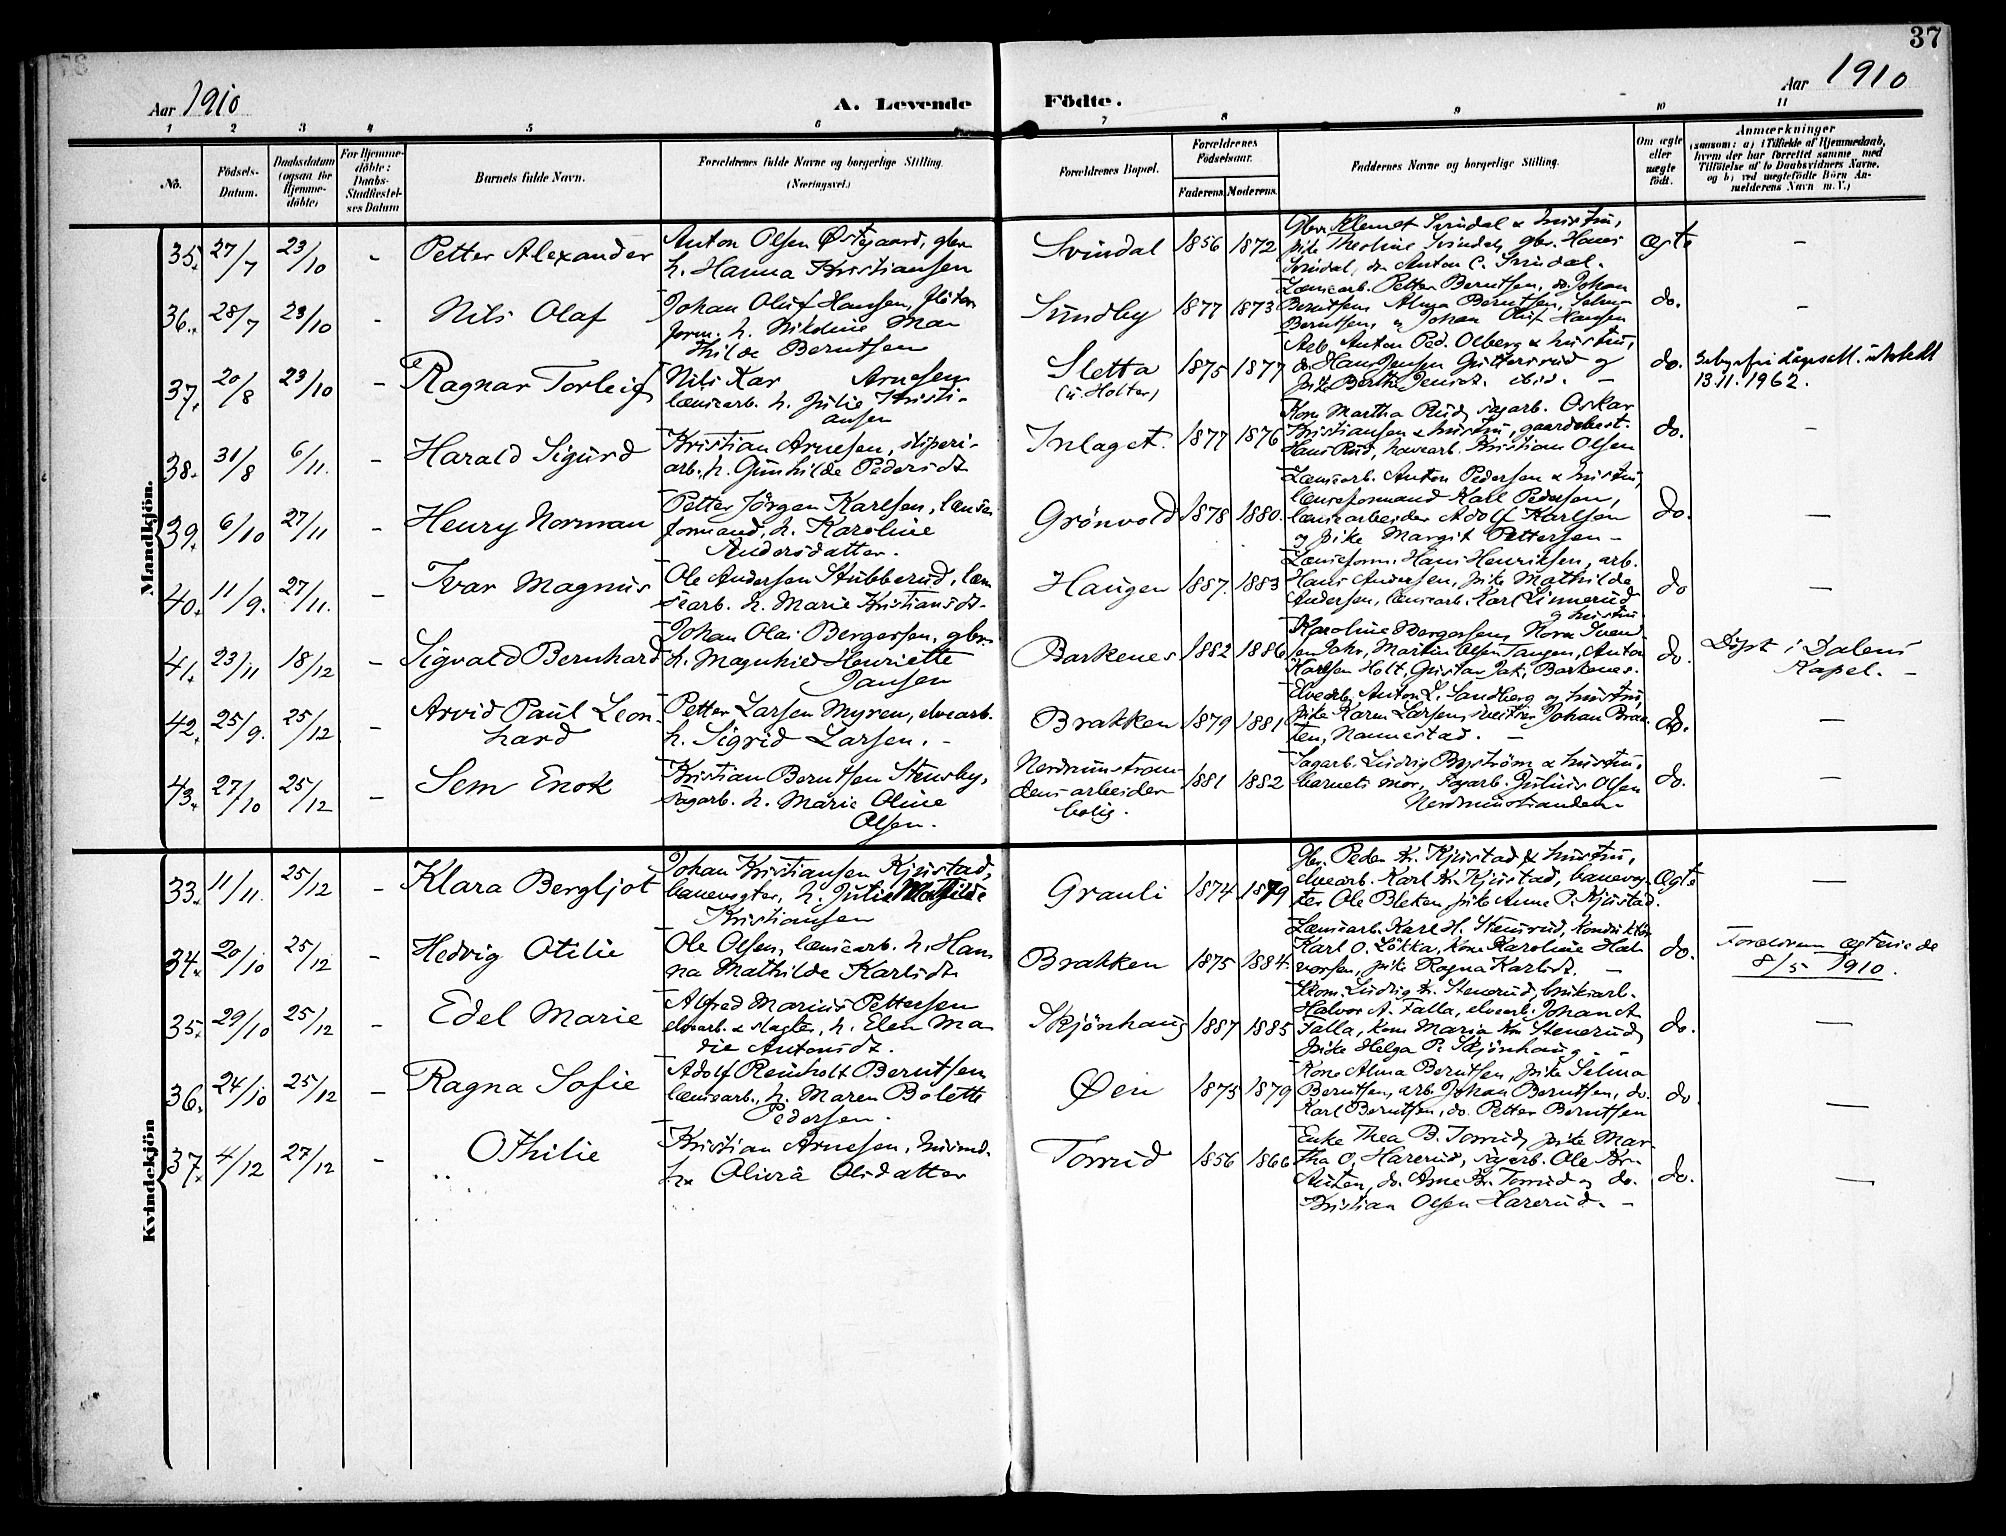 37
Aar 1910
A. Levende Födte.
Aar 1910
1 2 3 4 5 6 7 8 9 10 11
No.
Födsels-Datum.
Daabsdatum (ogsaa for Hjemmedöbte)
For Hjemmedöbte: Daabs-Stadfæstelses Datum
Barnets fulde Navn.
Forældrenes fulde Navne og borgerlige Stilling. (Næringsvei.)
Forældrenes Bopæl.
Forældrenes Födselsaar.
Faderens. Moderens.
Faddernes Navne og borgerlige Stilling.
Om ægte eller uægte födt.
Anmærkninger
(saasom: a) i Tilfælde af Hjemmedaab, hvem der har forrettet samme, med Tilföielse af to Daabsvidners Navne, og b) ved uægtefödte Börn Anmelderens Navn m. V.)
Mandkjön.
35. 27/7 23/10 - Petter Alexander
Anton Olsen Østgaard, gbr.
h. Hanna Kristiansen
Svindal 1856 1872
Gbr. Klemet Svindal & hustru,
pike Theoline Svindal, gbr. Hans
Svindal, do Anton C. Svindal.
ægte -
36. 28/7 23/10 - Nils Olaf
Johan Oluf Hansen, fløter
form. h. Nikoline Mat
hilde Berntsen
Sundby 1877 1873
Lænsearb. Petter Berntsen, do. Johan
Berntsen, Alma Berntsen, Selma
Berntsen, og Johan Oluf Hansen
do. -
37. 20/8 23/10 - Ragnar Torleif
Nils Kar Arnesen
lænsearb. h. Julie Kristi-
ansen
Sletta
(u. Holter)
1875 1877
Arb. Anton Ped. Olberg & hustru,
do Hans Jensen og
pike Berthe Jensdt. ibid. -
do.
13.11.1962.
38. 31/8 6/11. - Harald Sigurd
Kristian Arnesen, sliperi-
arb. h. Gunhilde Pedersdt
Inlaget. 1877 1876
Kone Martha Rud, sagarb. Oskar
Kristiansen & hustru, gaardbest.
Hans Rud, havearb. Kristian Olsen
do. -
39. 6/10 27/11 - Henry Norman
Petter Jörgen Karlsen, lænse
formand, h. Karoline
Andersdatter.
Grönvold 1878 1880.
Lænsearb. Anton Pedersen & hustru,
lænseformand Karl Pedersen,
lænsearbeider Adolf Karlsen
og pike Margit Pettersen -
do. -
40. 11/9. 27/11. - Ivar Magnus
Ole Andersen Stubberud, læn
searb. h. Marie Kristiansdt.
Haugen 1887. 1883
Lænseform. Hans Henriksen, arb.
Hans Andersen, pike Mathilde
Andersen, lænsearb. Karl Linnerud
og hustru
do -
41. 23/11 18/12 - Sigvald Bernhard
Johan Olai Bergersen, gbr.
h. Magnhild Henriette
Jansen
Barkenes 1882 1886
Karoline Bergersen, Nora Svend-
sen Jahr, Martin Olsen Tangen, Anton
Karlsen Holt, Gustav Jak. Barkenes.
do. Döpt i Dalens
Kapel. -
42. 25/9. 25/12 - Arvid Paul Leon
hard
Petter Larsen Myren, elvearb.
h. Sigrid Larsen. -
Brakken 1879 1881
Elvearb. Anton L. Sandberg og hustru,
pike Karen Larsen, Johan Braa
ten, Nannestad. -
do. -
43. 27/10 25/12 - Sem Enok
Kristian Berntsen Stensby,
sagarb. h. Marie Oline
Olsen.
Nerdrumstran-
dens arbeider
bolig.
1881 1882
Sagarb. Ludvig Byström & hustru,
barnets mor, sagarb. Julius Olsen
Nerdrumstranden.
do. -
Kvindekjön
33. 11/11. 25/12 - Klara Bergljot
Johan Kristiansen Kjustad,
banevogter, h. Julie Mathilde
Kristiansen
Grauli 1874 1879
Gbr. Peder Kr. Kjustad & hustru,
elvearb. Karl Kr. Kjustad, banevog-
ter Ole Bleken, pike Anne P. Kjustad.
Ægte -
34. 20/10 25/12 - Hedvig Otilie
Ole Olsen, lænsearb. h. Han
na Mathilde Karlsdt.
Brakken 1875 1884.
Lænsearb. Karl H. Stensrud, konduktör
Karl O. Lökka, kone Karoline Hal
vorsen, pike Ragna Karlsdt. -
do. Foreldrene ægteviede
8/5 1910.
35. 29/10 25/12 - Edel Marie
Alfred Marius Pettersen
elvearb. & slagter, h. Elen Ma
rie Antonsdt.
Skjönhaug 1887 1885
Skom. Ludvig Kr. Stenerud, bruksarb.
Halvor A. Falla, elvearb. Johan A.
Falla, kone Maria Kr. Stenerud,
pike Helga P. Skjönhaug. -
do. -
36. 24/10 25/12 - Ragna Sofie
Adolf Reinholt Berntsen
lænsearb., h. Maren Bolette
Pedersen.
Øien 1875 1879
Kone Alma Berntsen, pike Selma
Berntsen, arb. Johan Berntsen, do.
Karl Berntsen, do. Petter Berntsen
do. -
37. 4/12 27/12 - Othilie
Kristian Arnesen, husmd.
h. Olivia Olsdatter
Torrud 1856 1866
Enke Thea B. Torrud, pike Mar-
tha O. Harerud, sagarb. Ole Kr.
do. Arne Kr. Torrud og do.
Kristian Olsen Harerud. -
do. -